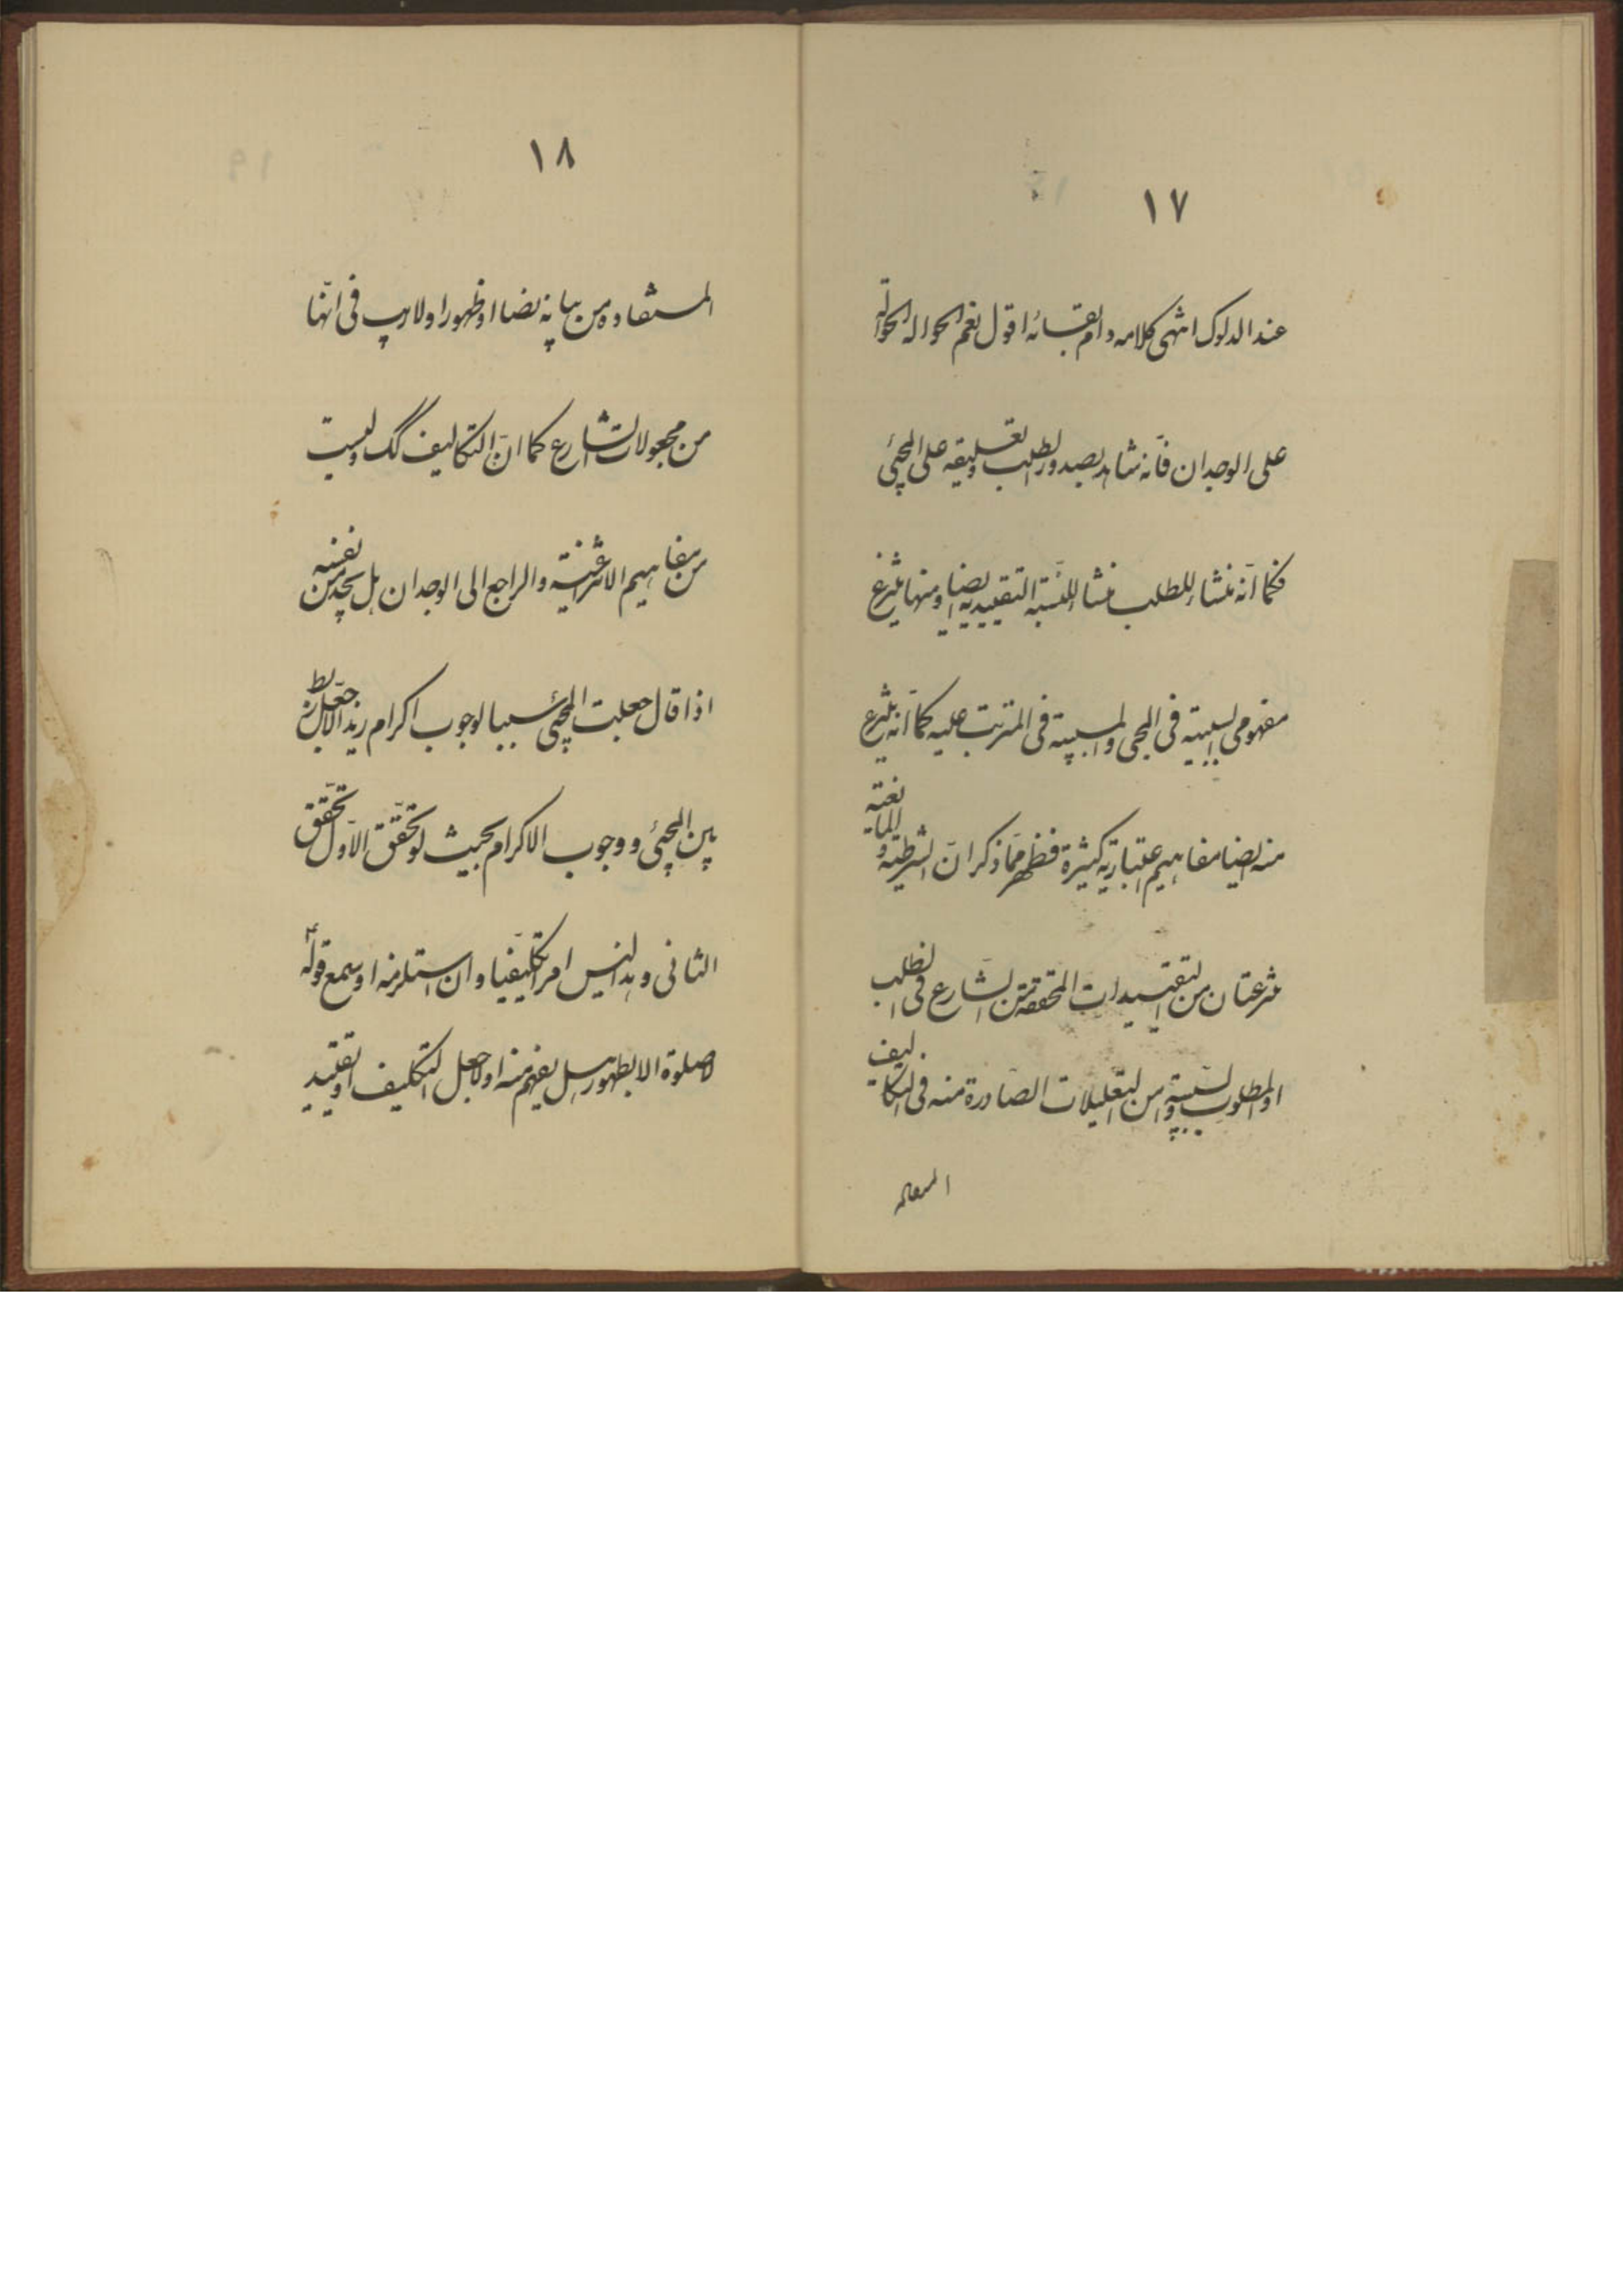 ١٧
عند الدلوک انتهی کلامه دام بقائه اقول نعم الحواله الحوالة
علی الوجدان فانّه شاهد بصدور الطلب و تعلیقه علی المجئ
فکما انّه منشاء للطلب منشاء للنّسبة التقییدیه ایضا و منها ینتزع
مفهومی السببیّه فی المجی و المسببیّه فی المترتب علیه کما انّه ینتزع
منه ایضا مفاهیم اعتباریّه کثیرة فظهر ممّا ذکر انّ الشرطیّه و المانعیّه
منتزعتان من التقییدات المتحققة من الشّارع فی الطلب
او المطلوب و السّببیّه من التعلیلات الصّادرة منه فی التکالیف
١٨
المستفاده من بیانه نصا او ظهورا و لا ریب فی انّها
من مجعولات الشارع کما انّ التکالیف کک و لیست
من مفاهیم الانتزاعیّة و الراجع الی الوجدان بل یجد من نفسه
اذا قال جعلت المجئ سببا لوجوب اکرام زید انّه جعل الربط
بین المجئ و وجوب الاکرام بحیث لو تحقّق الاوّل تحقّق
الثانی و هذا لیس امرا تکلیفیّا و ان استلزمه او سمع قوله
لا صلوة الا بطهور هل یفهم منه اولا جعل التکلیف او تقیید